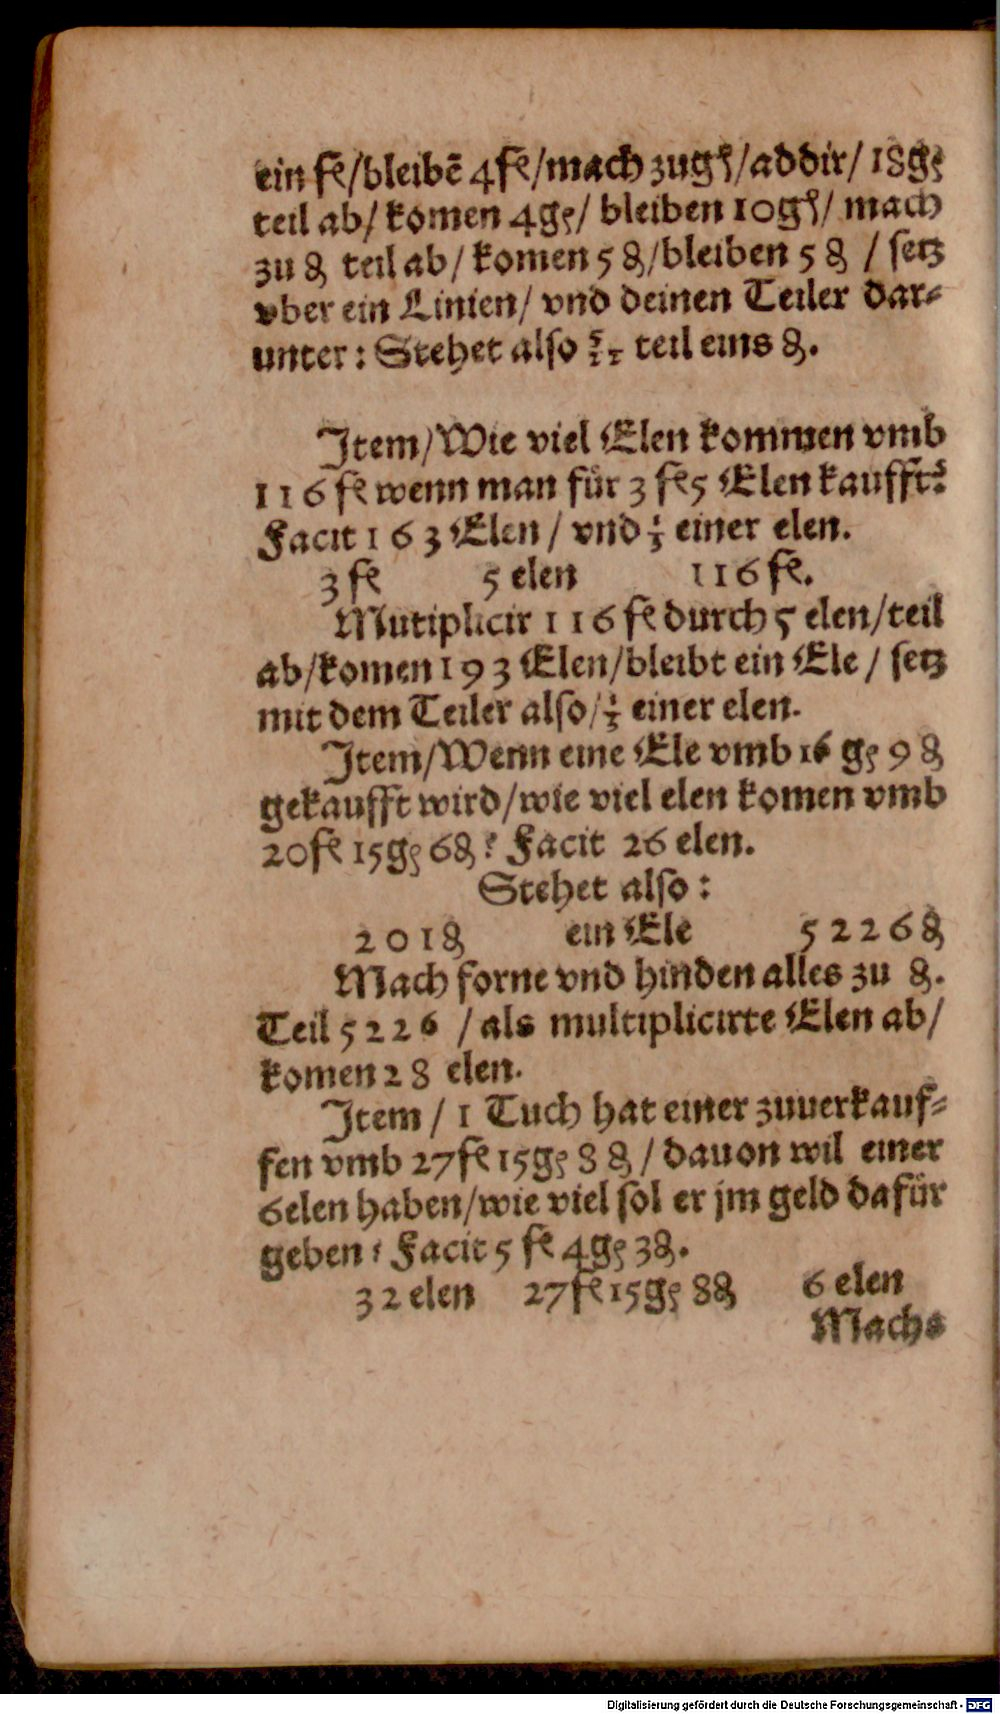 ein fl/bleibē 4fl/mach zugꝭ/addir/18gꝭ
teil ab/ komen 4gꝭ/ bleiben 10gꝭ/ mach
zu ₰ teil ab/ komen 5 ₰/bleiben 5 ₰ / setz
vber ein Linien/ vnd deinen Teiler dar⸗
unter: Stehet also teil eins ₰.
Item/Wie viel Elen kommen vmb
116 fl wenn man für 3 fl5 Elen kaufft?
Facit 1 6 3 Elen / vnd ⅓ einer elen.
3 fl 5 elen 116 fl.
Mutiplicir 1 1 6 fl durch 5 elen/teil
ab/komen 1 9 3 Elen/bleibt ein Ele / setz
mit dem Teiler also/⅓ einer elen.
Item/Wenn eine Ele vmb 16 gꝭ 9 ₰
gekaufft wird/wie viel elen komen vmb
20fl 15gꝭ 6₰? Facit 26 elen.
Stehet also:
2 0 1 ₰ ein Ele 5 2 2 6 ₰
Mach forne vnd hinden alles zu ₰.
Teil 5 2 2 6 / als multiplicirte Elen ab/
komen 2 8 elen.
Item / 1 Tuch hat einer zuuerkauf⸗
fen vmb 27fl 15gꝭ 8 ₰ / dauon wil einer
6elen haben/wie viel sol er jm geld dafür
geben? Facit 5 fl 4gꝭ 3₰.
3 2 elen 27fl 15gꝭ 8₰ 6 elen
Machs
Digitalisierung gefördert durch die Deutsche Forschungsgemeinschaft - DFG